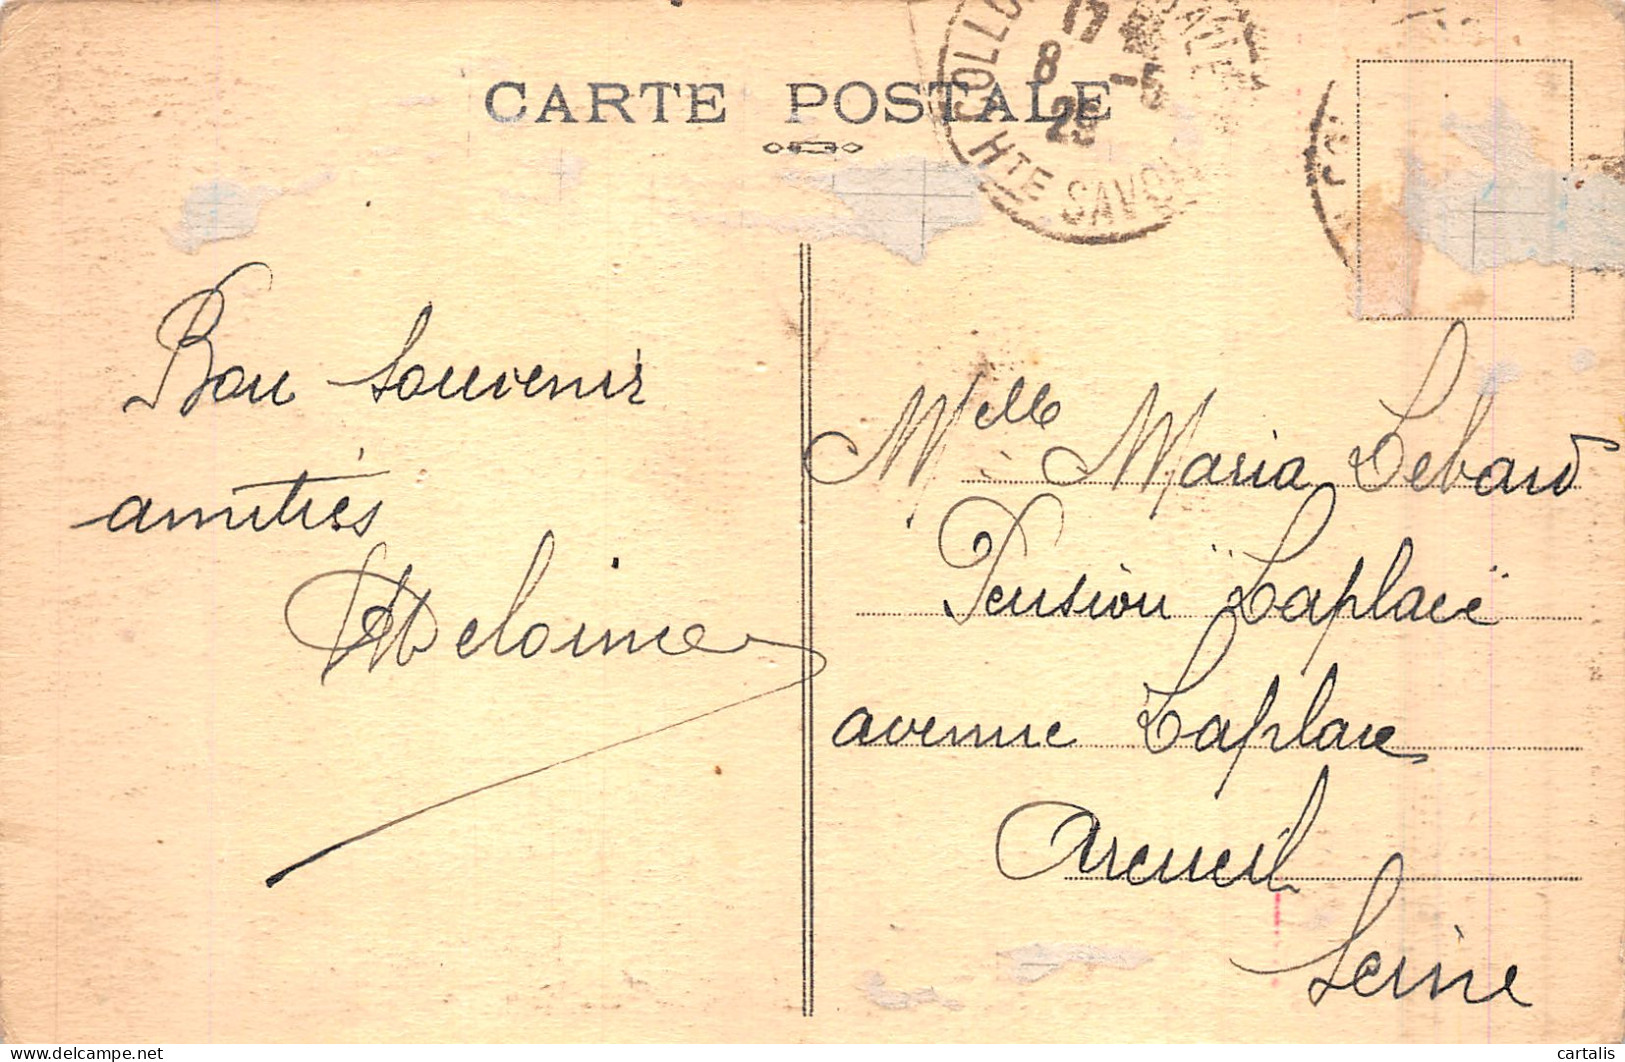 CARTE POSTALE
17
8 -5
25
HTE SAVOIE
Bon souvenir
amitiés
Melle Maria Lebard
Pension "Laplace"
avenue Laplace
Arcueil
Seine
cartalis